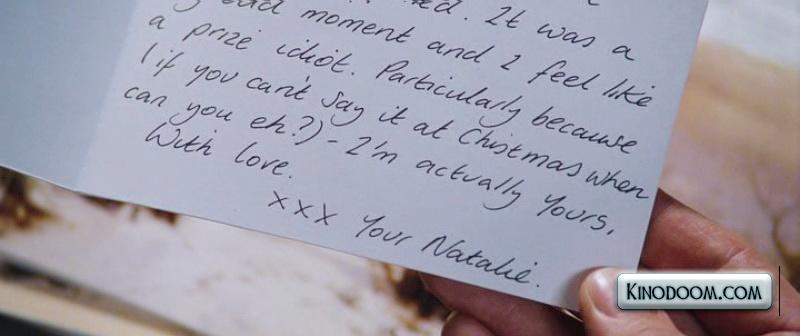 It was a
moment and I feel like
a prize idiot. Particularly because
(if you can't say it at Chistmas when
can you eh?) - I'm actually yours,
With love.
xxx Your Natalie.
KINODOOM.COM